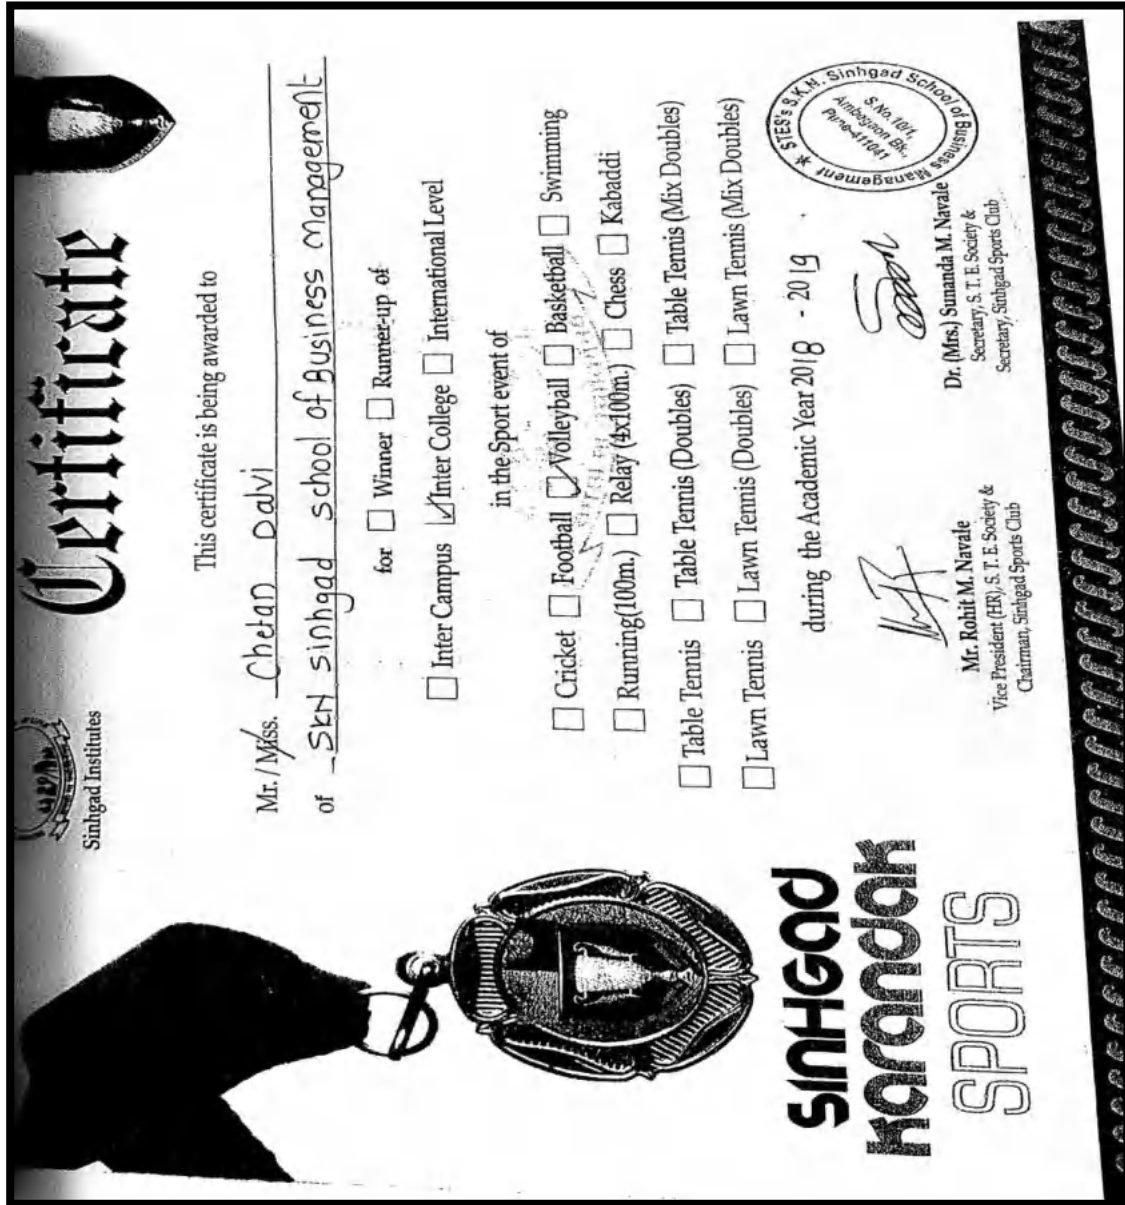 Sinhgad Institutes
Certificate
This certificate is being awarded to
Mr. / Miss. Chetan Dalvi
of SKN Sinhgad School of Business Management
for ☐ Winner ☐ Runner-up of
☐ Inter Campus ☑ Inter College ☐ International Level
in the Sport event of
☐ Cricket ☐ Football ☑ Volleyball ☐ Basketball ☐ Swimming
☐ Running(100m.) ☐ Relay (4x100m.) ☐ Chess ☐ Kabaddi
☐ Table Tennis ☐ Table Tennis (Doubles) ☐ Table Tennis (Mix Doubles)
☐ Lawn Tennis ☐ Lawn Tennis (Doubles) ☐ Lawn Tennis (Mix Doubles)
during the Academic Year 2018 - 2019
Mr. Rohit M. Navale
Vice President (HR), S. T. E. Society &
Chairman, Sinhgad Sports Club
Dr. (Mrs.) Sunanda M. Navale
Secretary, S. T. E. Society &
Secretary, Sinhgad Sports Club
STES's S.K.N. Sinhgad School of Business Management
S.No. 10/1,
Ambegaon Bk.,
Pune-411041
SINHGAD
KARANDAK
SPORTS